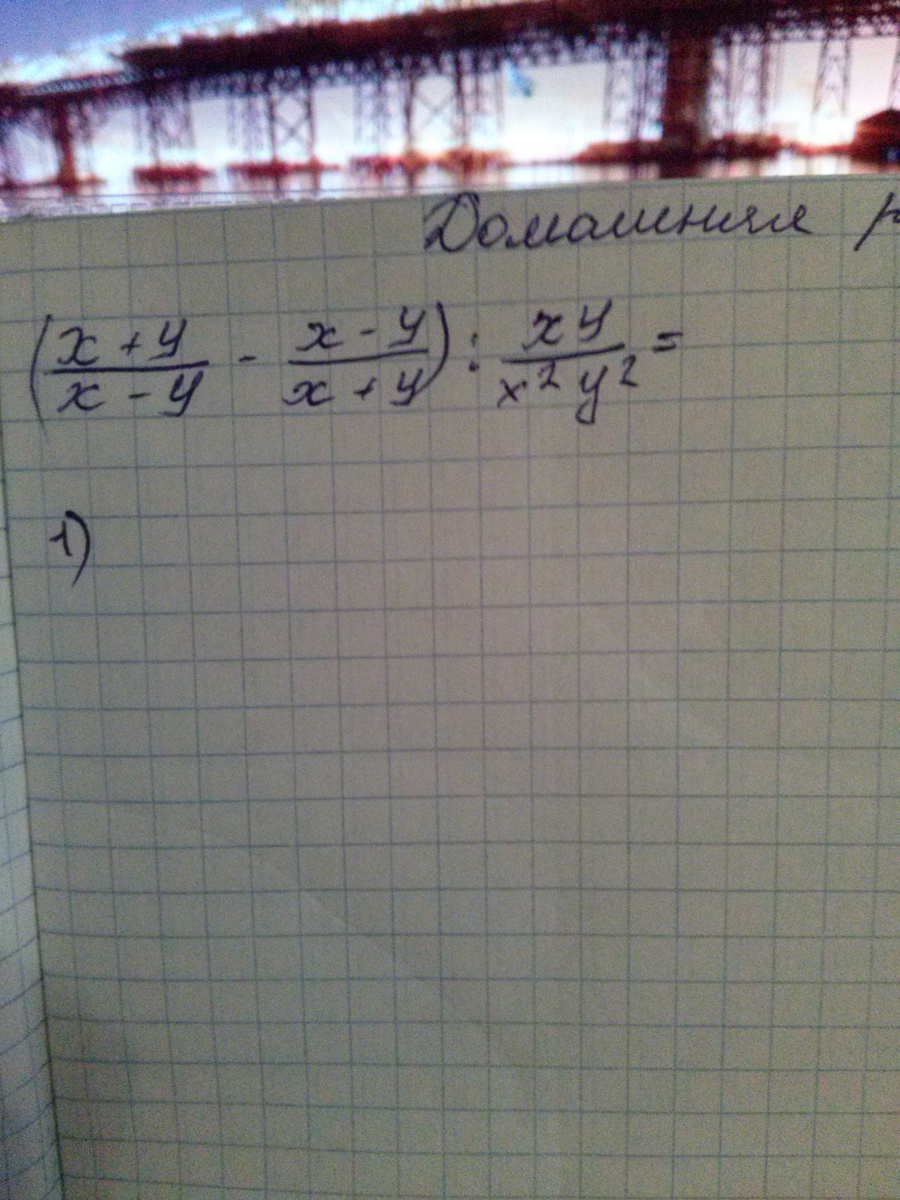 Домашняя р
(x + y / x - y - x - y / x + y) : xy / x² y² =
1)